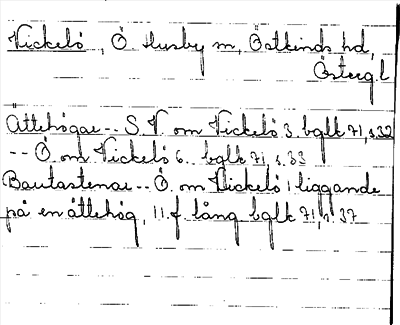 Vickelö, Ö Husby sn, Östkinds hd,
Östergl
Ättehögar -- S.V. om Vickelö 3 bglk 71, s.32
-- Ö. om Vickelö 6. bglk 71, s.33
Bautastenar -- Ö. om Vickelö 1 liggande
på en ättehög, 11 f. lång bglk 71, s.37